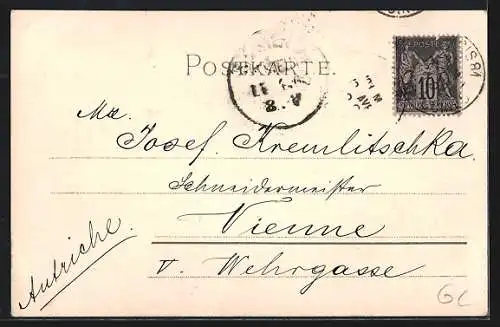 POSTKARTE.
POSTE
10
IS 81
Josef Kremlitschka.
Schneidermeister
Vienne
V. Wehrgasse
Autriche.
GC